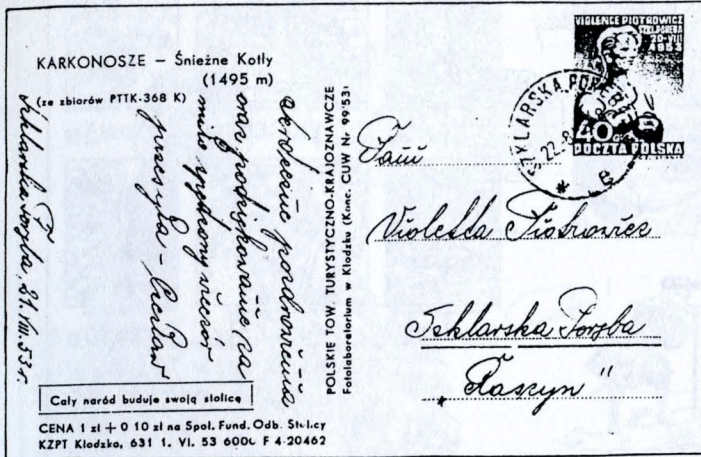 KARKONOSZE – Śnieżne Kotły
(1495 m)
(ze zbiorów PTTK-368 K)
Serdeczne pozdrowienia
oraz podziękowanie za
mile spędzony wieczór
przesyła –
Szklarska Poręba, 21.VIII.53 r.
Cały naród buduje swoją stolicę
CENA 1 zł + 0 10 zł na Społ. Fund. Odb. Stolicy
KZPT Kłodzko, 631 1. VI. 53 6000 F 4-20462
POLSKIE TOW. TURYSTYCZNO-KRAJOZNAWCZE
Fotolaboratorium w Kłodzku (Konc. GUW Nr. 99/53)
VIOLENCE PIOTROWICZ
SZKL.PORĘBA
20-VIII
1953
40
POCZTA POLSKA
SZKLARSKA POR
22-8
Pani
Violetta Piotrowicz
Szklarska Poręba